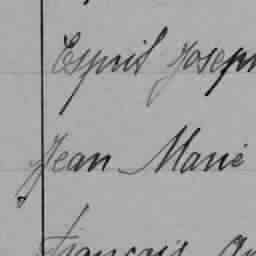 Esprit Joseph
Jean Marie
François